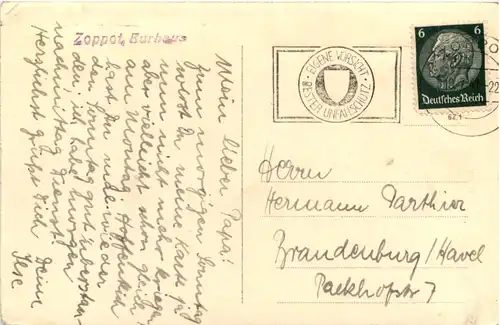 Zoppot, Kurhaus
Mein lieber Papa!
Zum morgigen Sonntag
wirst Du meine Karte ja
nun nicht mehr kriegen
aber vielleicht schon gleich
am Montag. Hoffentlich
hast Du mal wieder
den Sonntag gut überstan-
den, ich habe morgen
nachmittag Dienst.
Herzlichst grüßt Dich Deine
Ilse
EIGENE VORSICHT
BESTER UNFALLSCHUTZ
6 6
Deutsches Reich
Herrn
Hermann Parthier
Brandenburg/Havel
Packhofstr 7